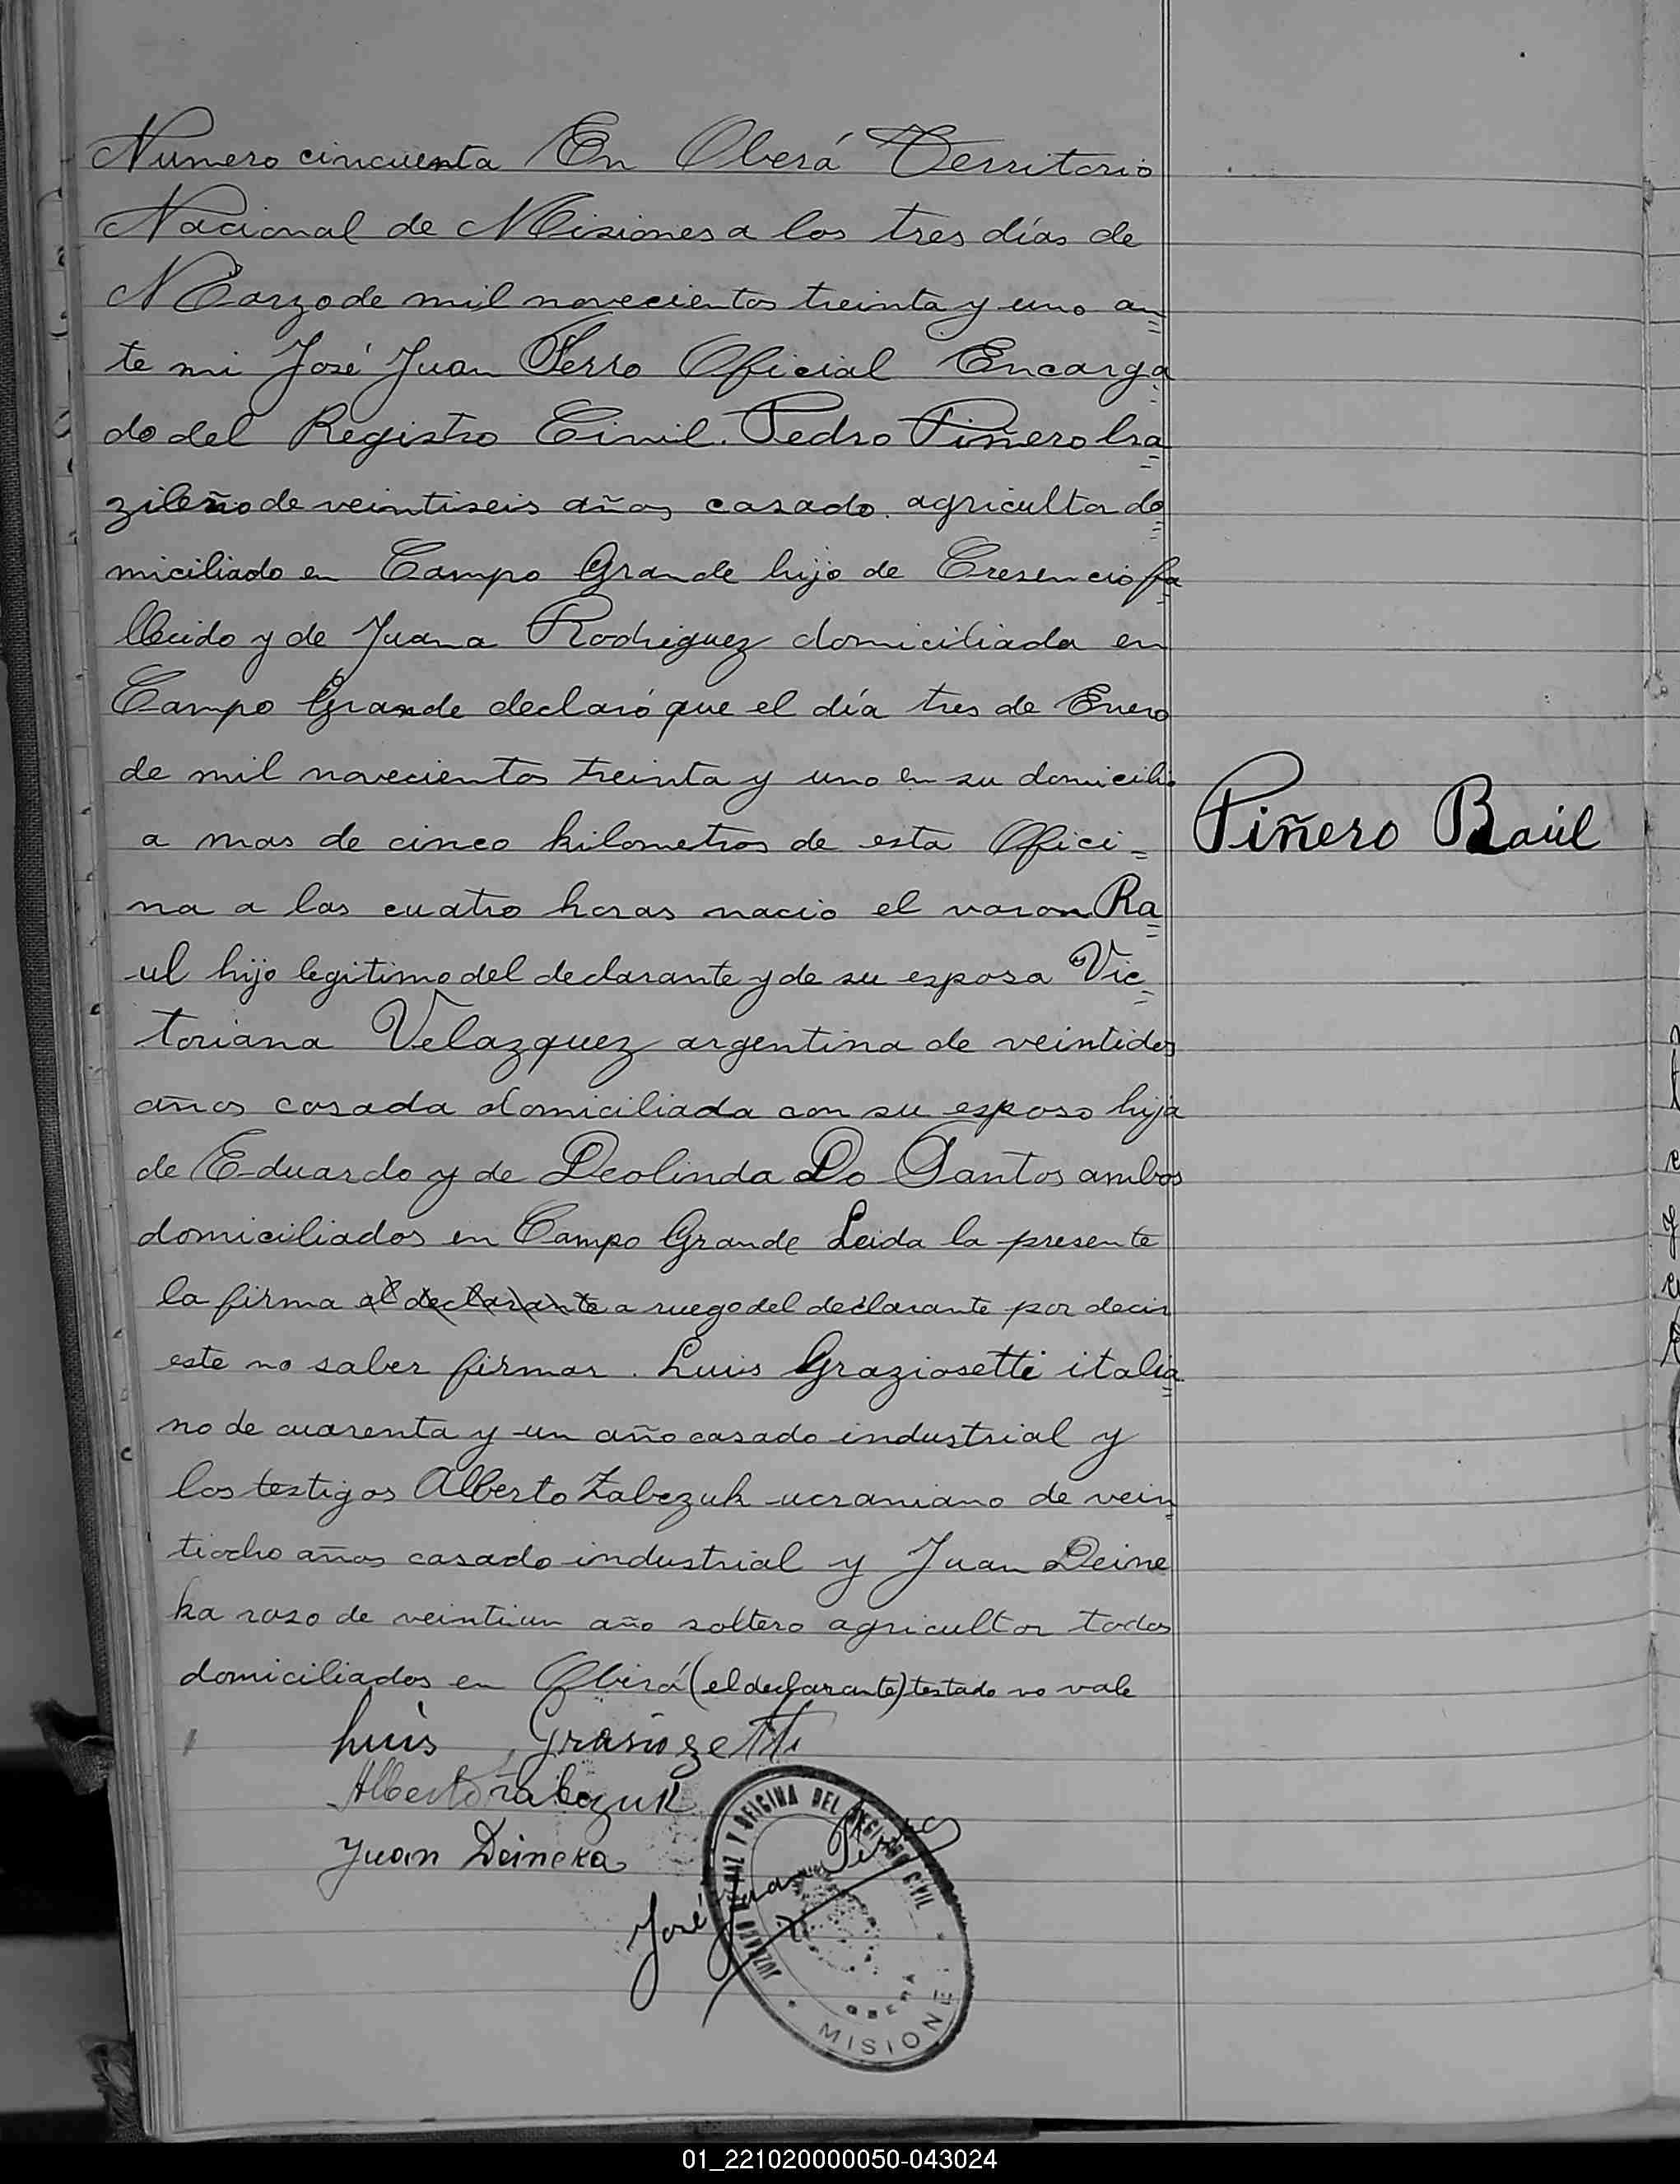 Numero cincuenta En Oberá Territorio
Nacional de Misiones a los tres días de
Marzo de mil novecientos treinta y uno an=
te mi José Juan Ferro Oficial Encarga=
do del Registro Civil. Pedro Piñero bra=
zileño de veintiseis años casado. agricultor do=
miciliado en Campo Grande hijo de Cresencio fa=
llecido y de Juana Rodriguez domiciliada en
Campo Grande declaró que el día tres de Enero
de mil novecientos treinta y uno en su domicilio
a mas de cinco kilometros de esta Ofici=
Piñero Raúl
na a las cuatro horas nacio el varon Ra=
ul hijo legitimo del declarante y de su esposa Vic=
toriana Velazquez argentina de veintidos
años casada domiciliada con su esposo hija
de Eduardo y de Deolinda Do Santos ambos
domiciliados en Campo Grande Leida la presente
la firma el declarante a ruego del declarante por decir
este no saber firmar. Luis Graziosetti italia=
no de cuarenta y un año casado industrial y
los testigos Alberto Zabczuk ucraniano de vein=
tiocho años casado industrial y Juan Deine
ka ruso de veintiun año soltero agricultor todos
domiciliados en Oberá (el declarante) testado no vale
Luis Grasiozetti
Alberto Zabczuk
Juan Deineka
José Juan Ferro
JUZGADO DE PAZ Y OFICINA DEL REGISTRO CIVIL
OBERA
MISIONE
01_221020000050-043024